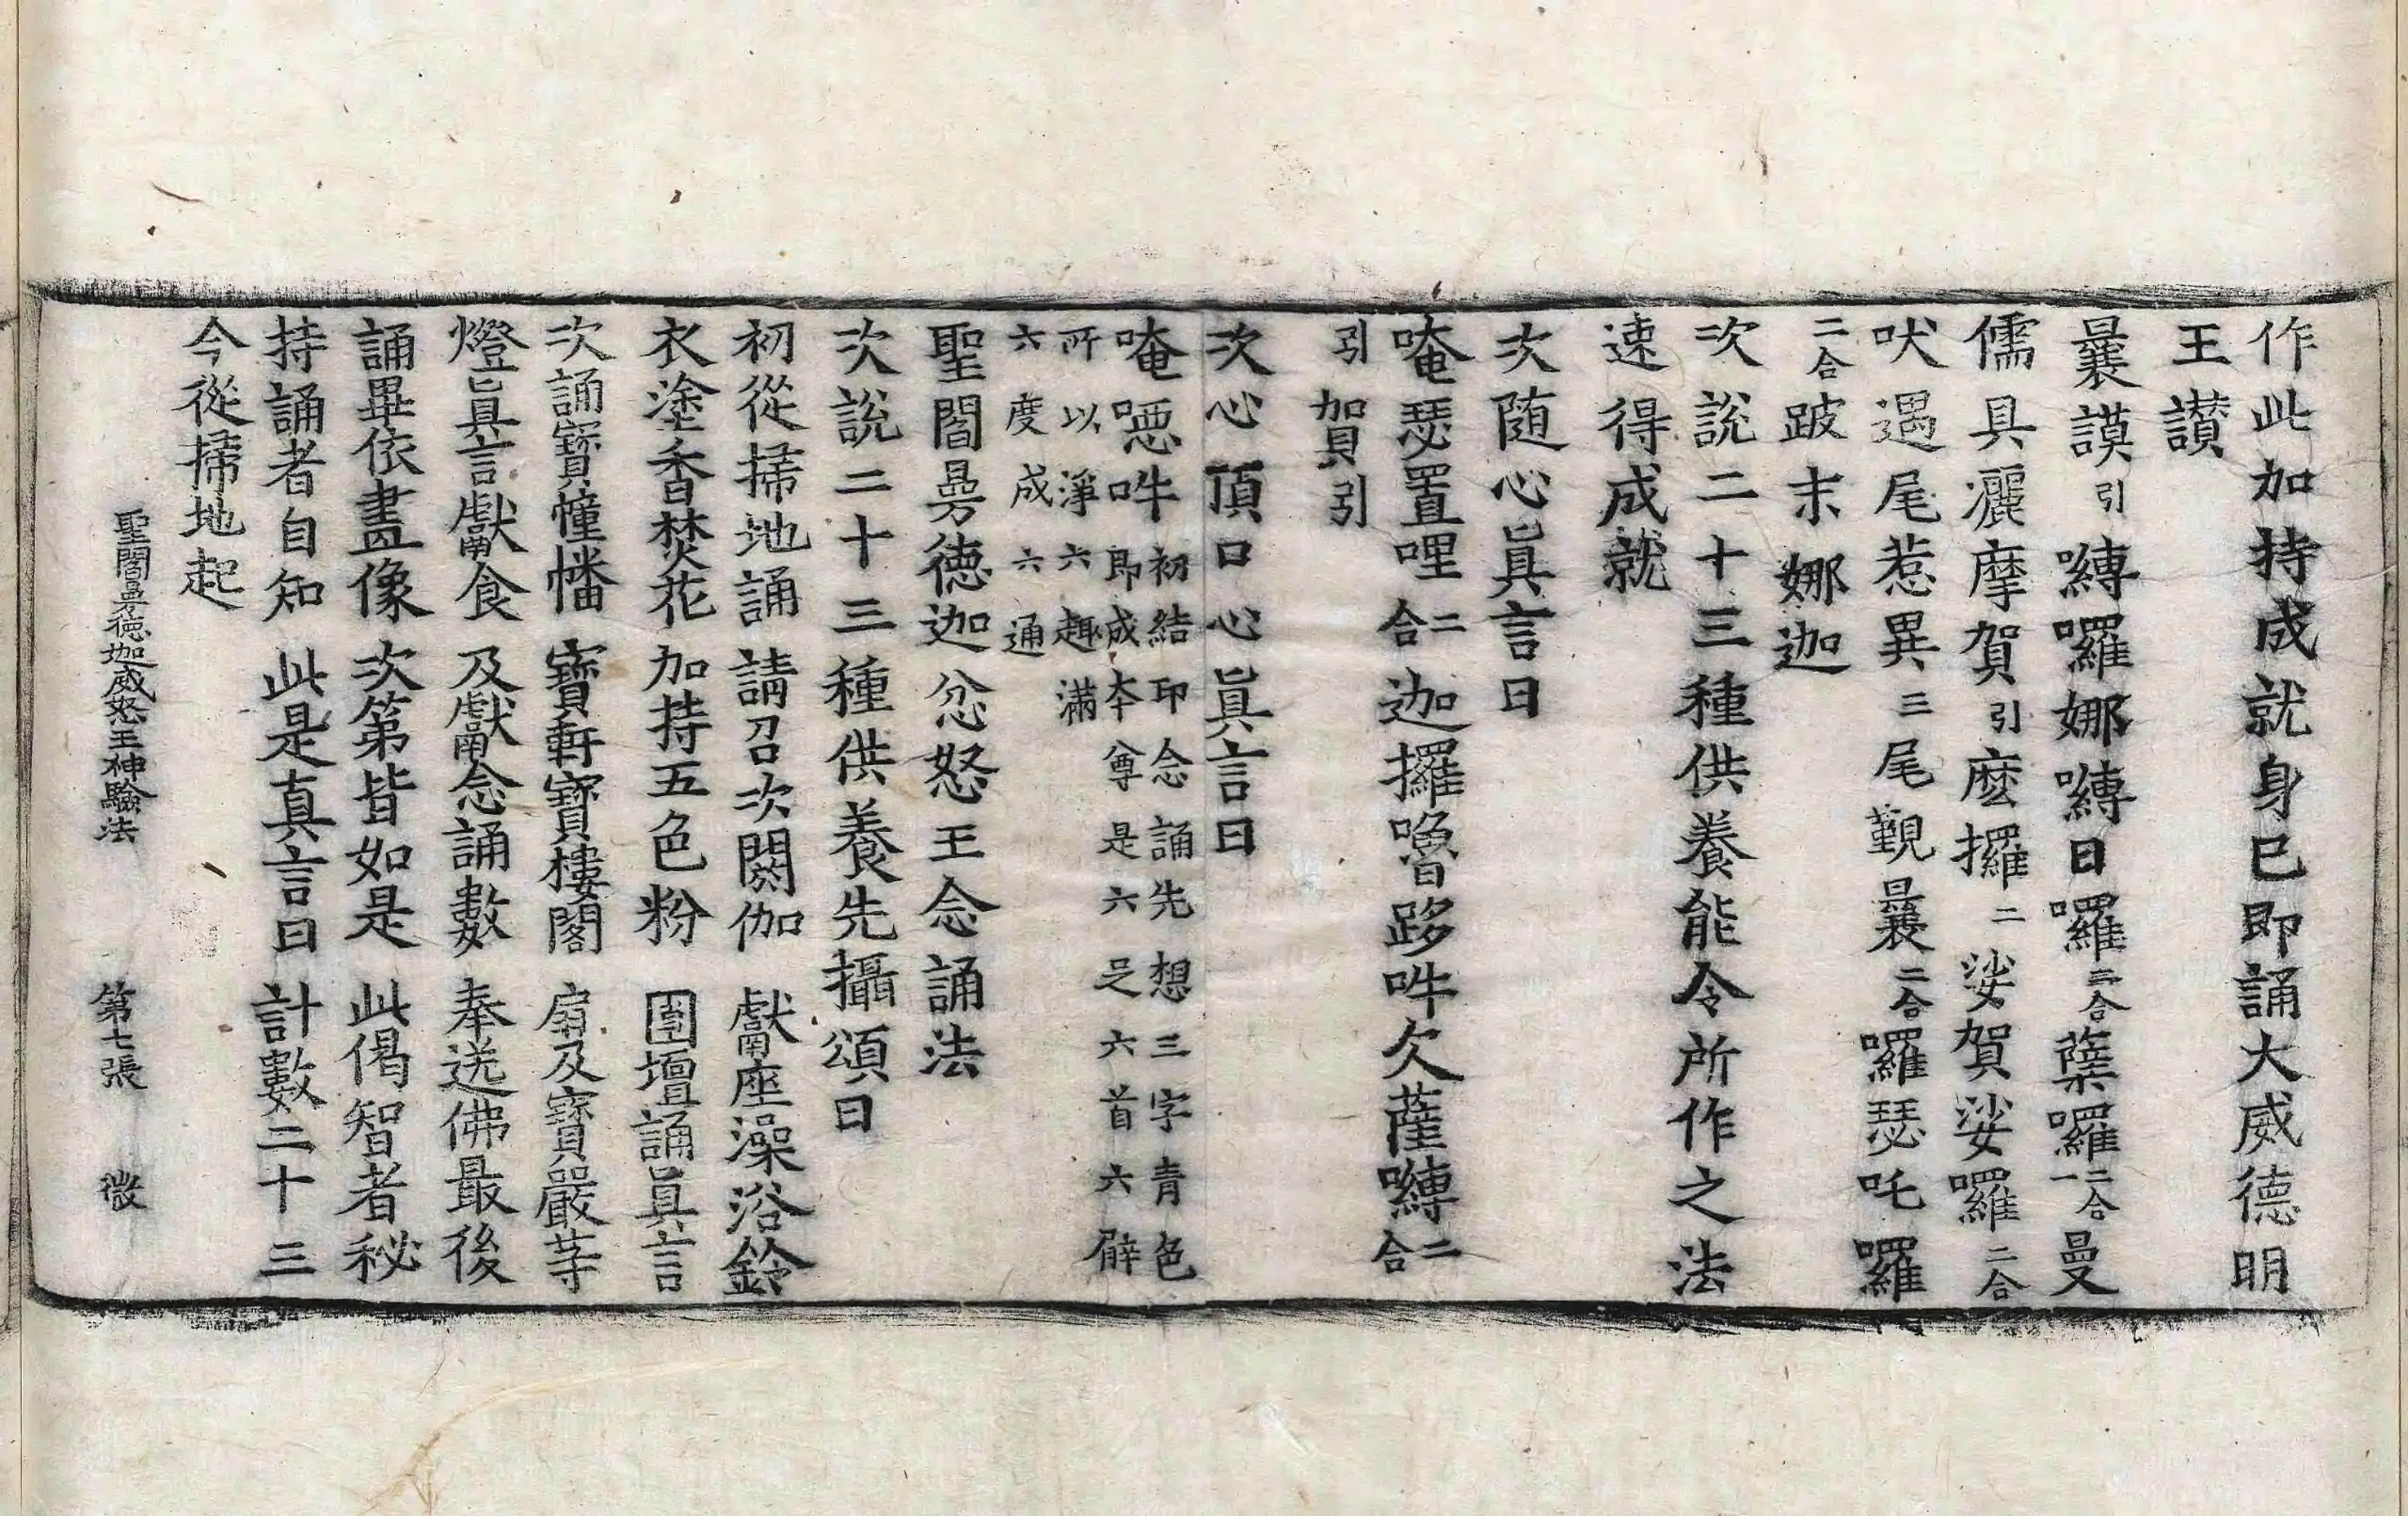 作此加持成就身已即誦大威德明
王讚
曩謨引嚩囉娜嚩日囉二合蘖囉二合一曼
儒具灑摩賀引麽攞二娑賀娑囉二合
吠遏尾惹異三尾覲曩二合囉瑟吒囉
二合跛末娜迦
次說二十三種供養能令所作之法
速得成就
次随心眞言曰
唵瑟置哩二合迦攞嚕跢吽欠薩嚩二合
引賀引
次心頂口心眞言曰
唵噁吽初結印念誦先想三字青色
即成本尊是六足六首六臂
所以淨六趣滿
六度成六通
聖閻曼德迦忿怒王念誦法
次說二十三種供養先攝頌曰
初從掃地誦 請召次閼伽 獻座澡浴鈴
衣塗香焚花 加持五色粉 圍壇誦眞言
次誦寶幢幡 寶軿寶樓閣 扇及寶嚴等
燈眞言獻食 及獻念誦數 奉送佛最後
誦畢依畫像 次第皆如是 此偈智者秘
持誦者自知 此是真言曰 計數二十三
今從掃地起
聖閻曼德迦威怒王神驗法 第七張 微